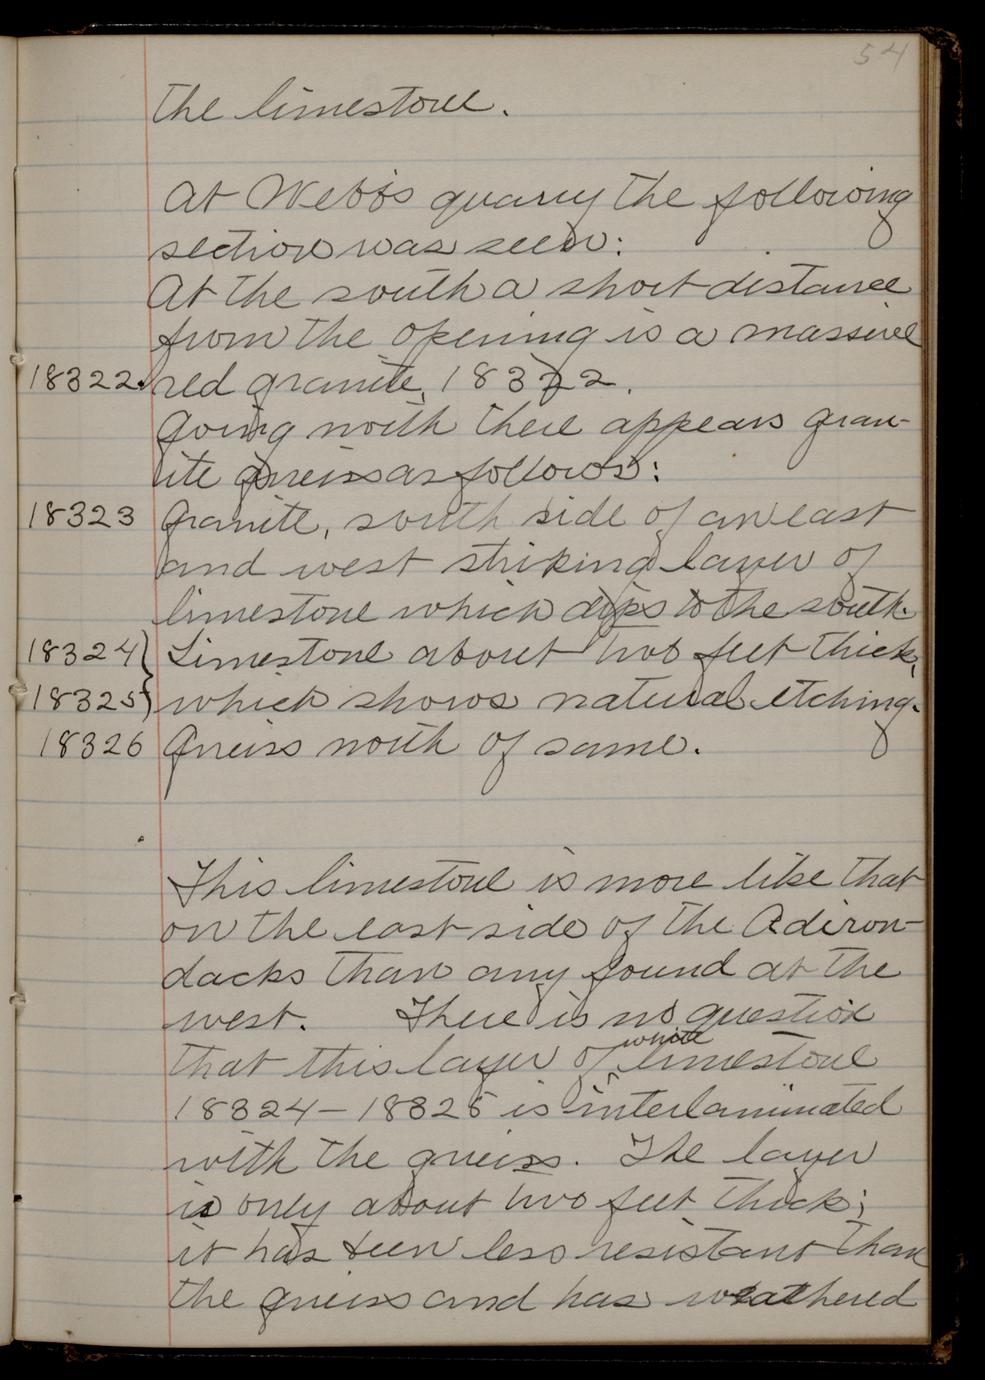 54
the limestone.
At Webb's quarry the following
section was seen:
At the south a short distance
from the opening is a massive
18322. red granite, 18322.
Going north there appears gran-
ite gneiss as follows:
18323 Granite, south side of an east
and west striking layer of
limestone which dips to the south.
18324 } Limestone about two feet thick,
18325 } which shows natural etching.
18326 Gneiss north of same.
This limestone is more like that
on the east side of the Adiron-
dacks than any found at the
west. There is no question
that this layer of ^white limestone
18324-18325 is interlaminated
with the gneiss. The layer
is only about two feet thick;
it has been less resistant than
the gneiss and has weathered